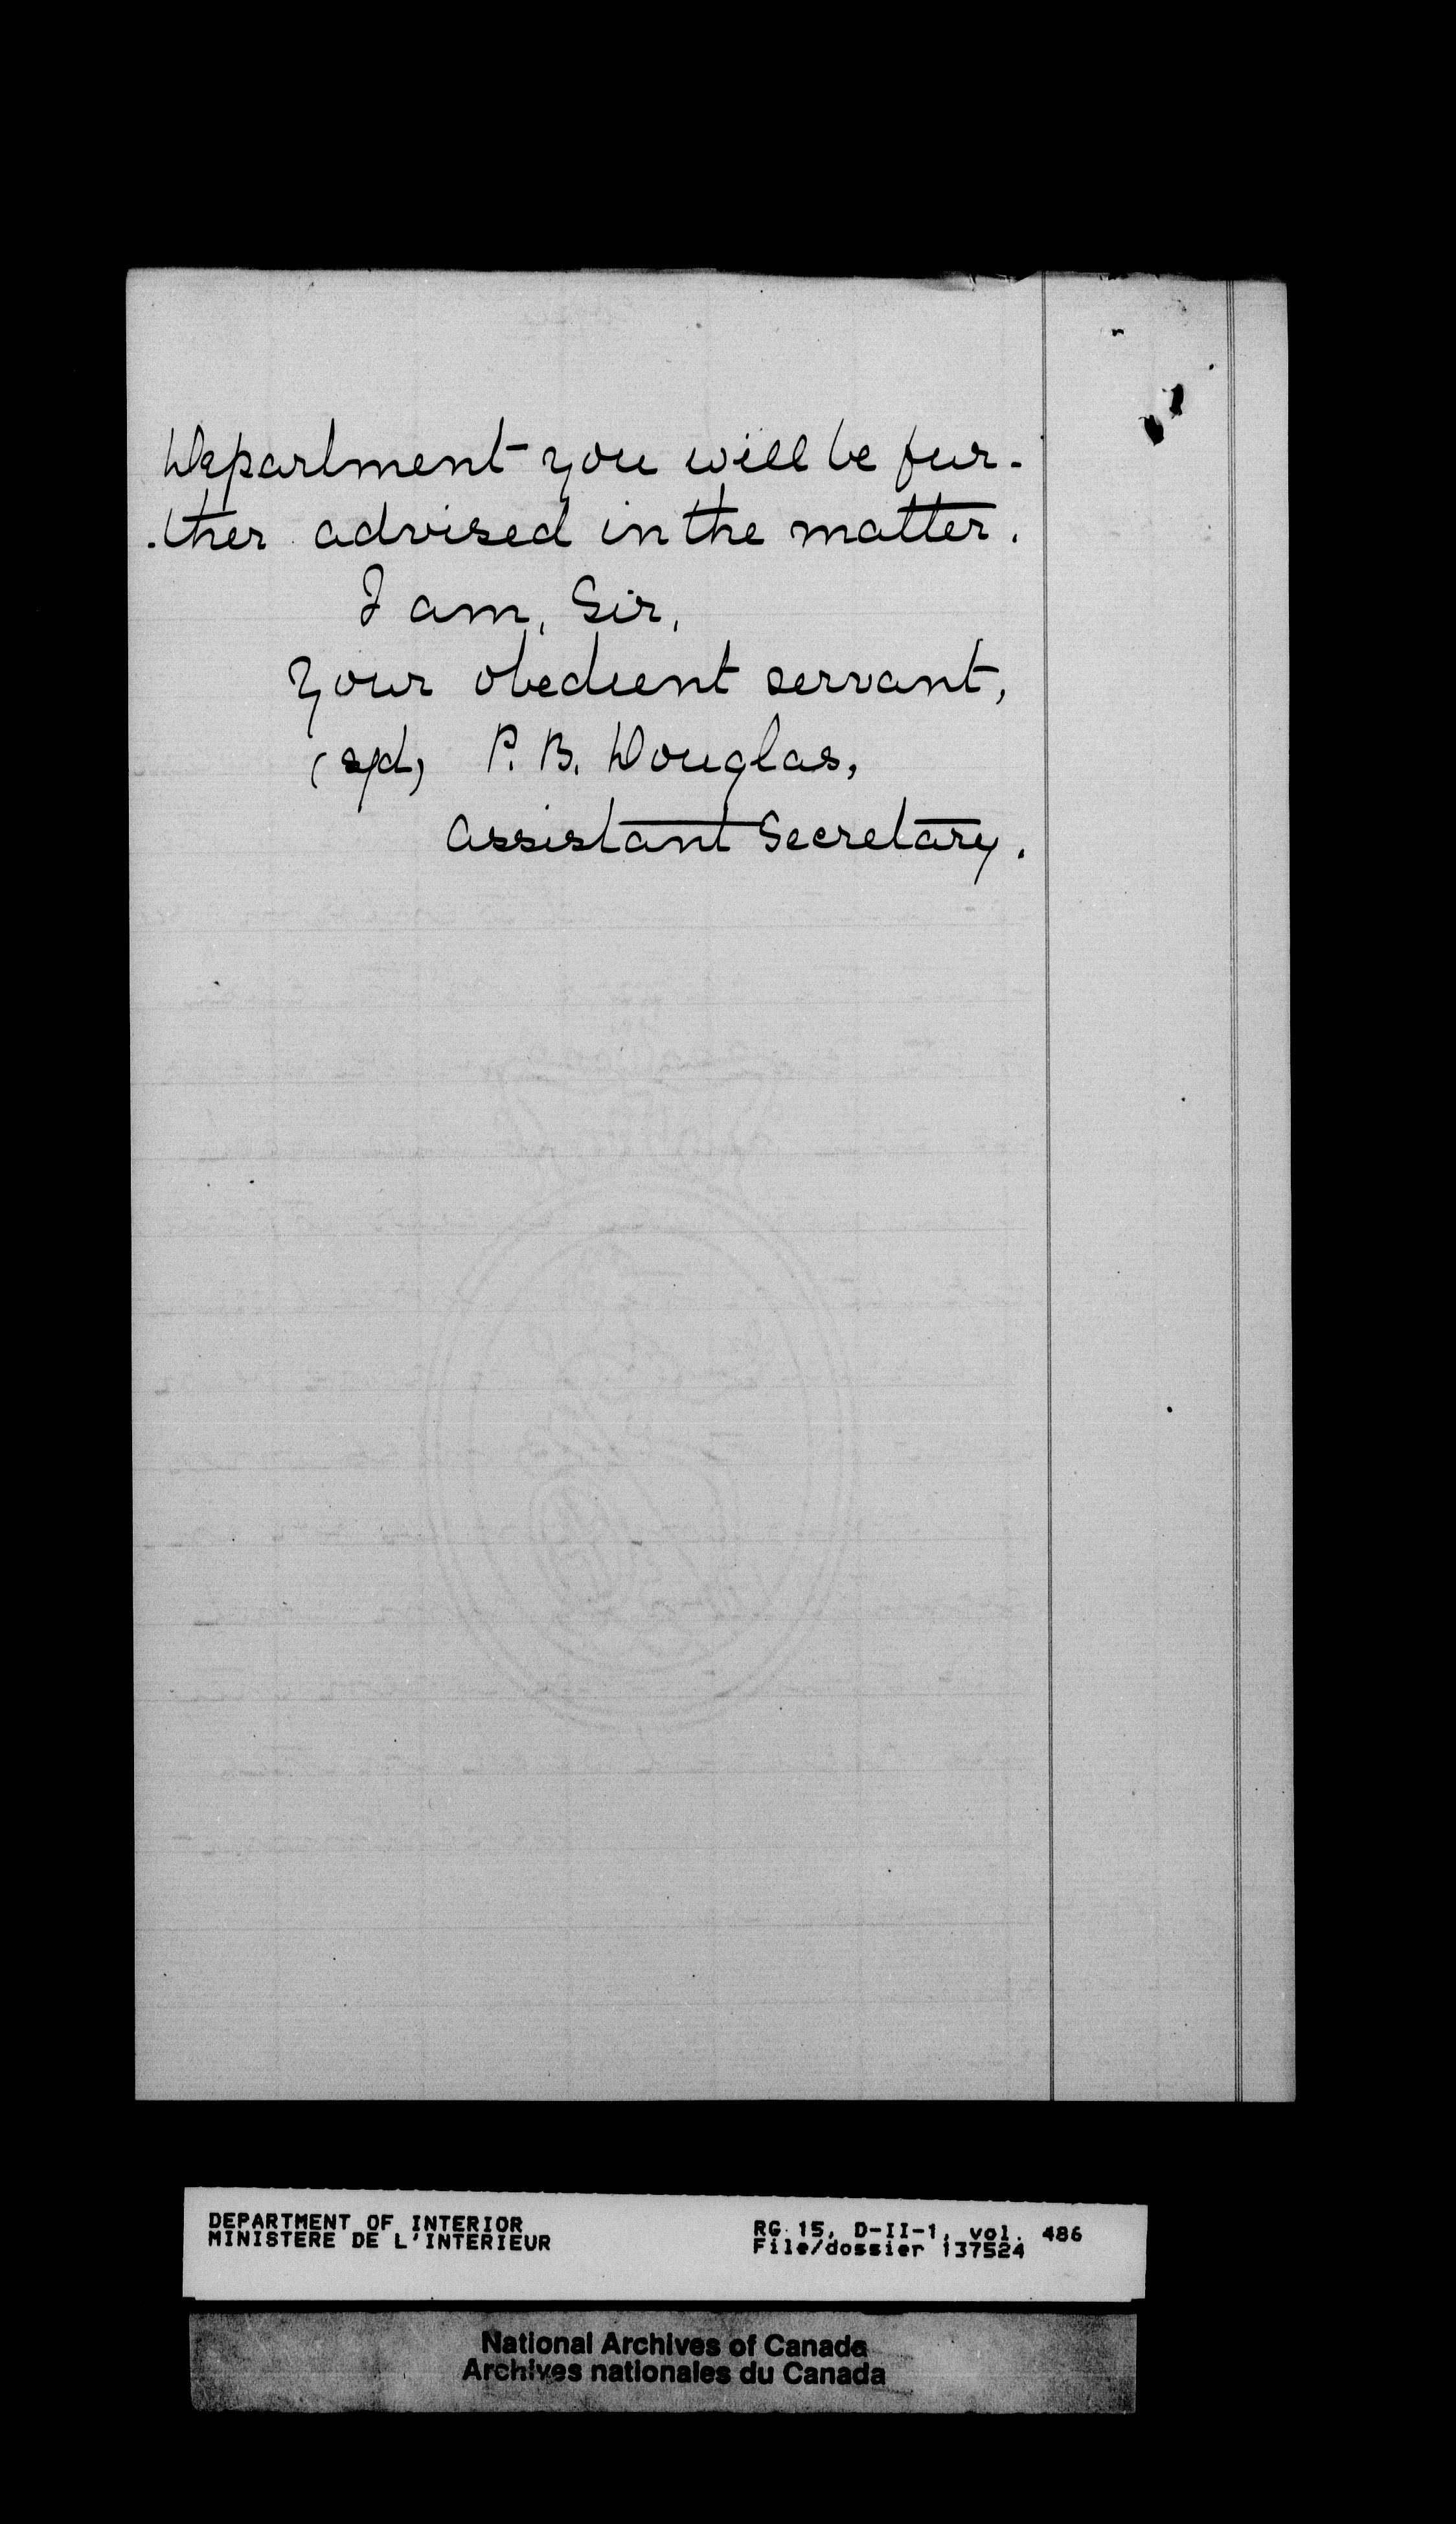 Department you will be fur-
-ther advised in the matter.
I am, Sir,
Your obedient servant,
(sgd) P. B. Douglas,
Assistant Secretary.
DEPARTMENT OF INTERIOR
MINISTERE DE L'INTERIEUR
RG 15, D-II-1, vol. 486
File/dossier 137524
National Archives of Canada
Archives nationales du Canada